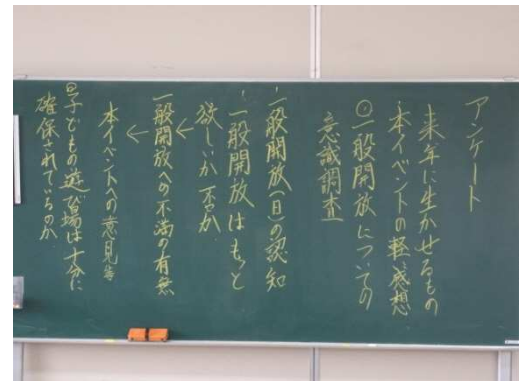 アンケート
来年に生かせるもの
本イベントの軽い感想
◎一般開放についての
意識調査
・一般開放(日)の認知
・一般開放はもっと
欲しいか否か
一般開放への不満の有無
本イベントへの意見等
◎子どもの遊び場は十分に
確保されているのか